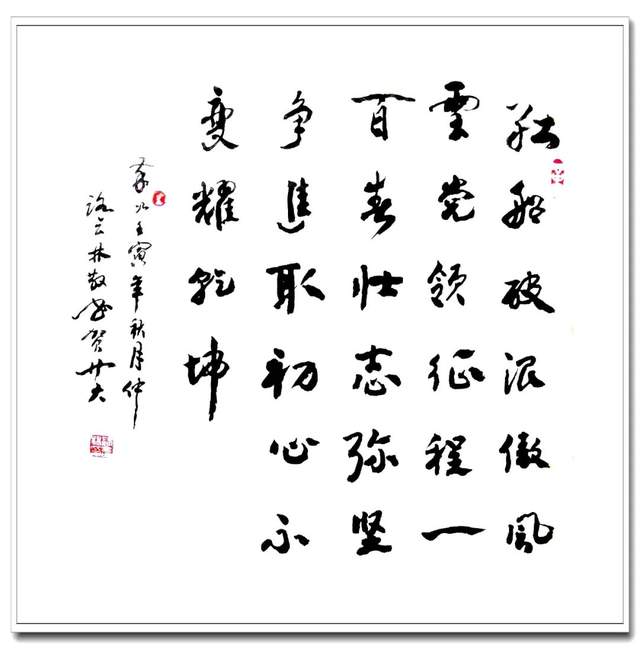 红船破浪傲风
雲党领征程一
百春壮志弥坚
争進取初心不
变耀乾坤
壬寅年秋月仲
林敬书贺廿大